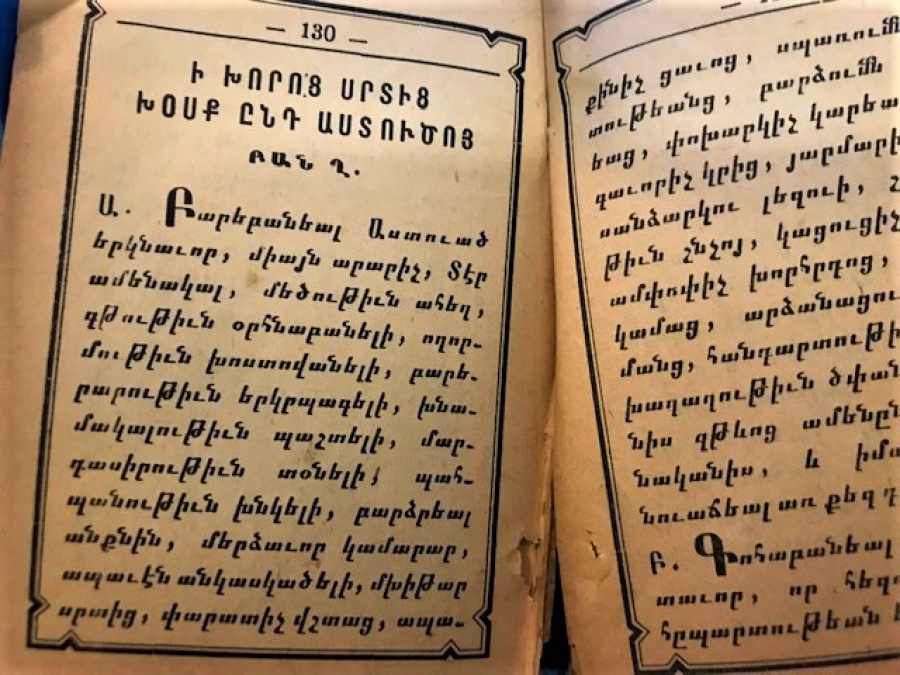 — 130 —
Ի ԽՈՐՈՑ ՍՐՏԻՑ
ԽՕՍՔ ԸՆԴ ԱՍՏՈՒԾՈՅ
ԲԱՆ Ղ.
Ա. Բարեբանեալ Աստուած
երկնաւոր, միայն արարիչ, Տէր
ամենակալ, մեծութիւն ահեղ,
գթութիւն օրհնաբանելի, ողոր-
մութիւն խոստովանելի, բարե-
րարութիւն երկրպագելի, խնա-
մակալութիւն պաշտելի, մար-
դասիրութիւն տօնելի, պահ-
պանութիւն խնկելի, բարձրեալ
անքնին, մերձաւոր կամարար,
ապաւէն անկասկածելի, մխիթար
սրտից, փարատիչ վշտաց, ապա-
քինիչ ցաւոց, սպառումն
տութեանց, բարձումն
եաց, փոխարկիչ կարեա
զաւորիչ կրից, յարմարի
սանձարկու լեզուի,
թիւն շնչոյ, կացուցիչ
ամփոփիչ խորհրդոց,
կամաց, արձանացու
մանց, հանդարտութի
խաղաղութիւն ծփան
նիս զթևոց ամենըն
նականիս, և իմա
նուաճեալ առ քեզ դ
Բ. Գոհաբանեալ
տաւոր, որ հեզո
հրպարտութեան